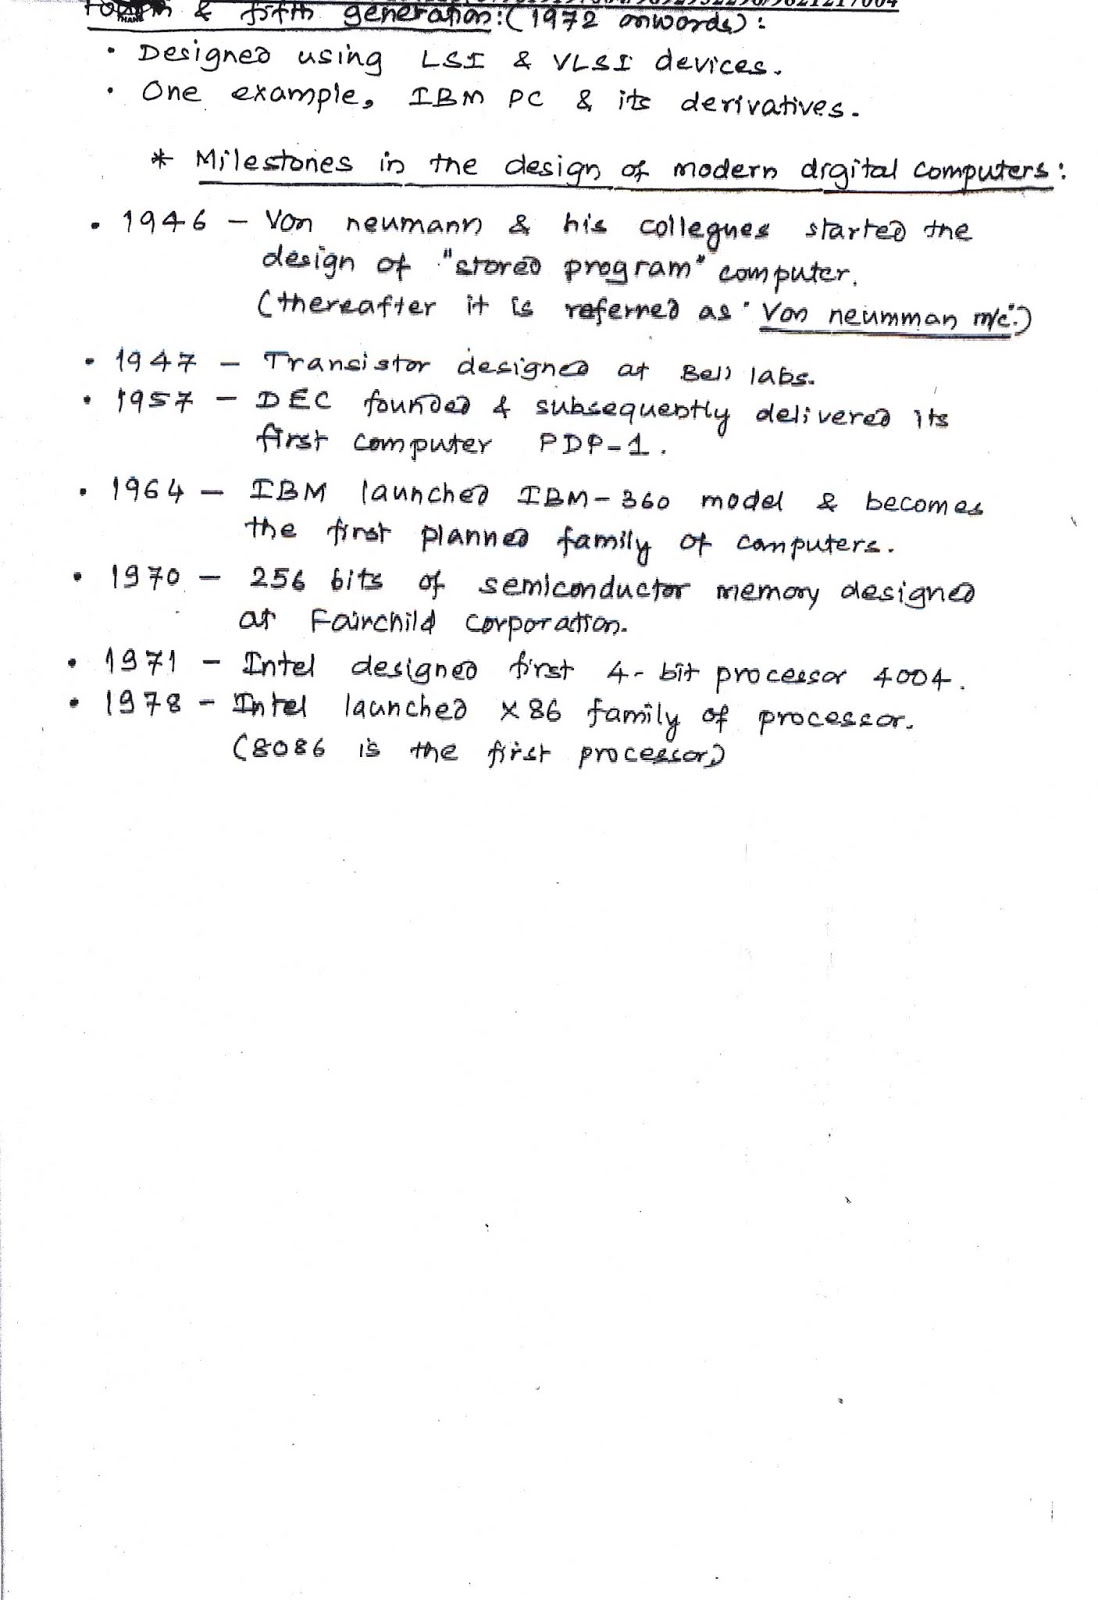 & fifth generation:(1972 onwords):
• Designed using LSI & VLSI devices.
• One example, IBM PC & its derivatives.
* Milestones in the design of modern drgital computers:
• 1946 – Von neumann & his collegues started the
design of "stored program" computer.
(thereafter it is referred as "Von neumman m/c".)
• 1947 – Transistor designed at Bell labs.
• 1957 – DEC founded & subsequently delivered its
first computer PDP-1.
• 1964 – IBM launched IBM-360 model & becomes
the first planned family of computers.
• 1970 – 256 bits of semiconductor memory designed
at Fairchild corporation.
• 1971 – Intel designed first 4-bit processor 4004.
• 1978 – Intel launched x86 family of processor.
(8086 is the first processor)